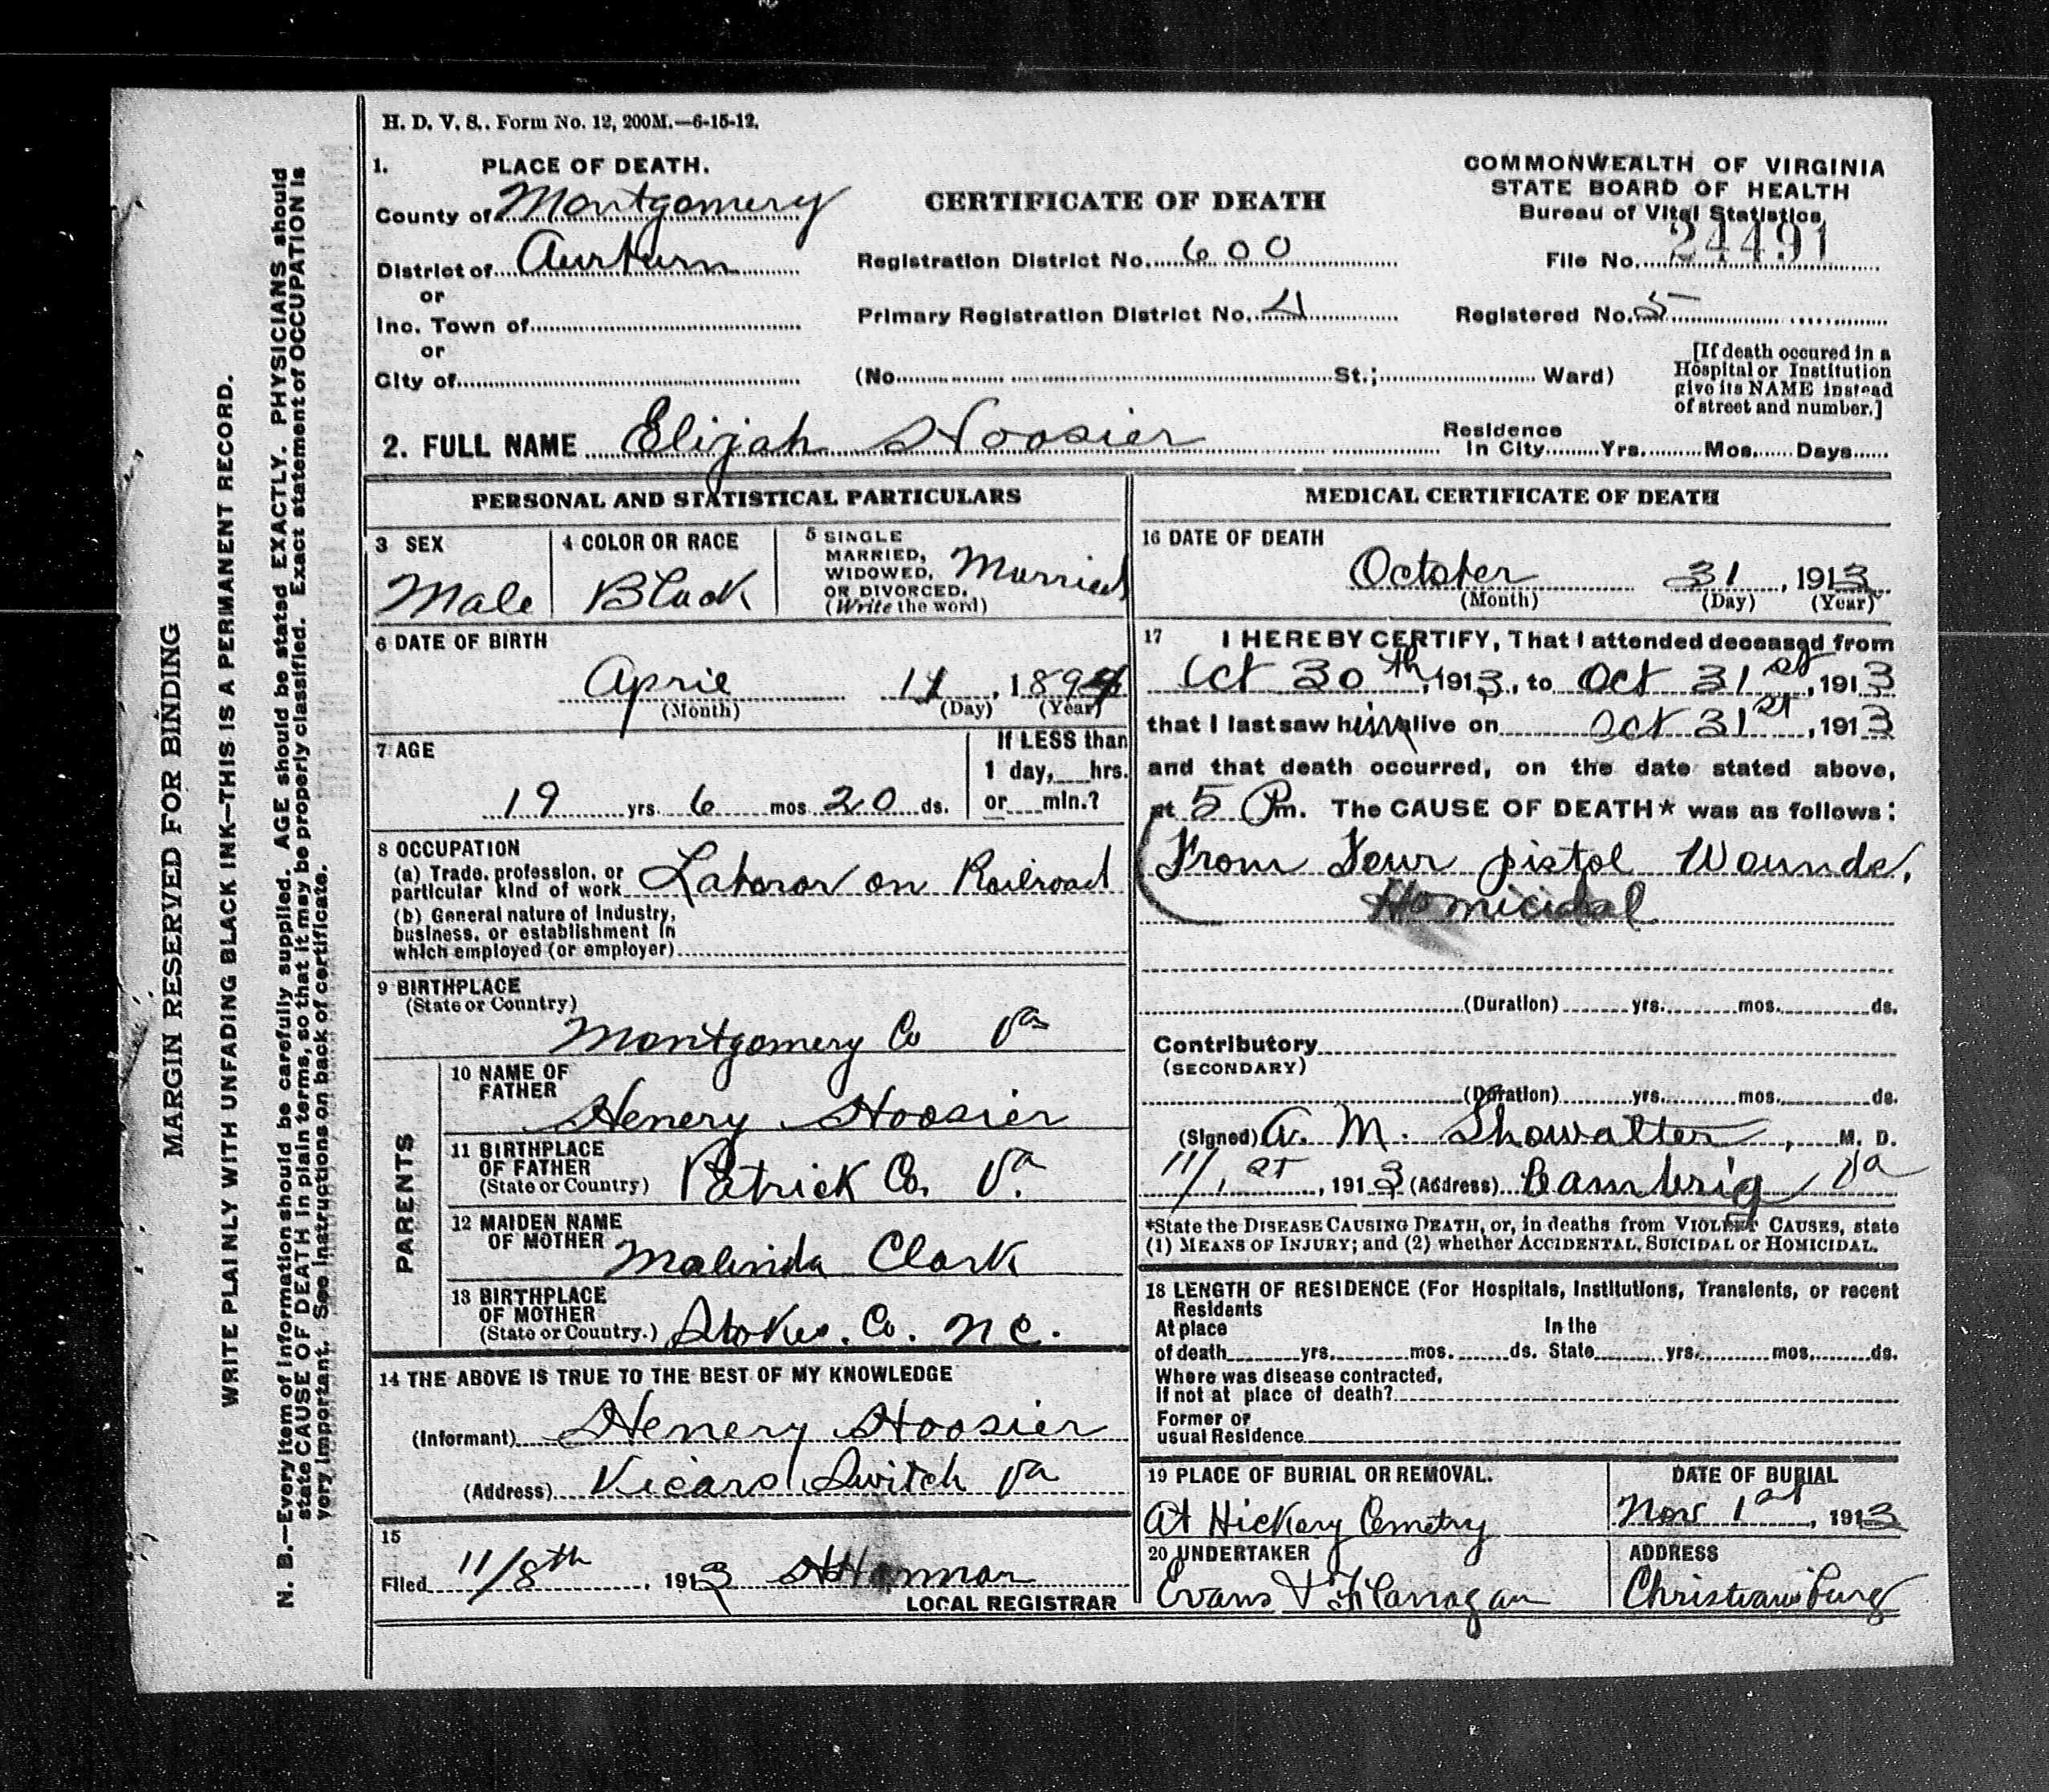 H. D. V. S.. Form No. 12, 200M.—6-15-12.
1. PLACE OF DEATH.
County of Montgomery
District of Aurburn
or
Inc. Town of
or
City of
CERTIFICATE OF DEATH
Registration District No. 600
Primary Registration District No. 4
(No. St.; Ward)
COMMONWEALTH OF VIRGINIA
STATE BOARD OF HEALTH
Bureau of Vital Statistics
File No. 24491
Registered No. 5
[If death occured in a
Hospital or Institution
give its NAME instead
of street and number.]
2. FULL NAME Elijah Hoosier
Residence
In City Yrs. Mos. Days
PERSONAL AND STATISTICAL PARTICULARS
3 SEX
Male
4 COLOR OR RACE
Black
5 SINGLE
MARRIED,
WIDOWED,
OR DIVORCED.
(Write the word)
Married
6 DATE OF BIRTH
April 11, 1894
(Month) (Day) (Year)
7 AGE
19 yrs. 6 mos. 20 ds.
If LESS than
1 day, hrs.
or min.?
8 OCCUPATION
(a) Trade, profession, or
particular kind of work Laboror on Railroad
(b) General nature of Industry,
business, or establishment in
which employed (or employer)
9 BIRTHPLACE
(State or Country)
Montgomery Co Va
PARENTS
10 NAME OF
FATHER
Henery Hoosier
11 BIRTHPLACE
OF FATHER
(State or Country) Patrick Co. Va
12 MAIDEN NAME
OF MOTHER
Malinda Clark
13 BIRTHPLACE
OF MOTHER
(State or Country.) Stokes. Co. N C.
14 THE ABOVE IS TRUE TO THE BEST OF MY KNOWLEDGE
(Informant) Henery Hoosier
(Address) Vicars Switch Va
15
Filed 11/8th, 1913
LOCAL REGISTRAR
MEDICAL CERTIFICATE OF DEATH
16 DATE OF DEATH
October 31, 1913
(Month) (Day) (Year)
17 I HEREBY CERTIFY, That I attended deceased from
Oct 30th, 1913, to Oct 31st, 1913
that I last saw him alive on Oct 31st, 1913
and that death occurred, on the date stated above,
at 5 Pm. The CAUSE OF DEATH* was as follows:
From Four pistol Wounds.
Homicidal
(Duration) yrs. mos. ds.
Contributory
(SECONDARY)
(Duration) yrs. mos. ds.
(Signed) A. M. Showalter, M. D.
11/1st, 1913 (Address) Cambrig Va
*State the DISEASE CAUSING DEATH, or, in deaths from VIOLENT CAUSES, state
(1) MEANS OF INJURY; and (2) whether ACCIDENTAL, SUICIDAL or HOMICIDAL.
18 LENGTH OF RESIDENCE (For Hospitals, Institutions, Transients, or recent
Residents
At place In the
of death yrs. mos. ds. State yrs. mos. ds.
Where was disease contracted,
If not at place of death?
Former or
usual Residence
19 PLACE OF BURIAL OR REMOVAL.
At Hickery Cemetry
DATE OF BURIAL
Nov 1st, 1913
20 UNDERTAKER
Evans & Flanagan
ADDRESS
Christiansburg
MARGIN RESERVED FOR BINDING
WRITE PLAINLY WITH UNFADING BLACK INK—THIS IS A PERMANENT RECORD.
N. B.—Every item of information should be carefully supplied. AGE should be stated EXACTLY. PHYSICIANS should
state CAUSE OF DEATH in plain terms, so that it may be properly classified. Exact statement of OCCUPATION is
very important. See instructions on back of certificate.